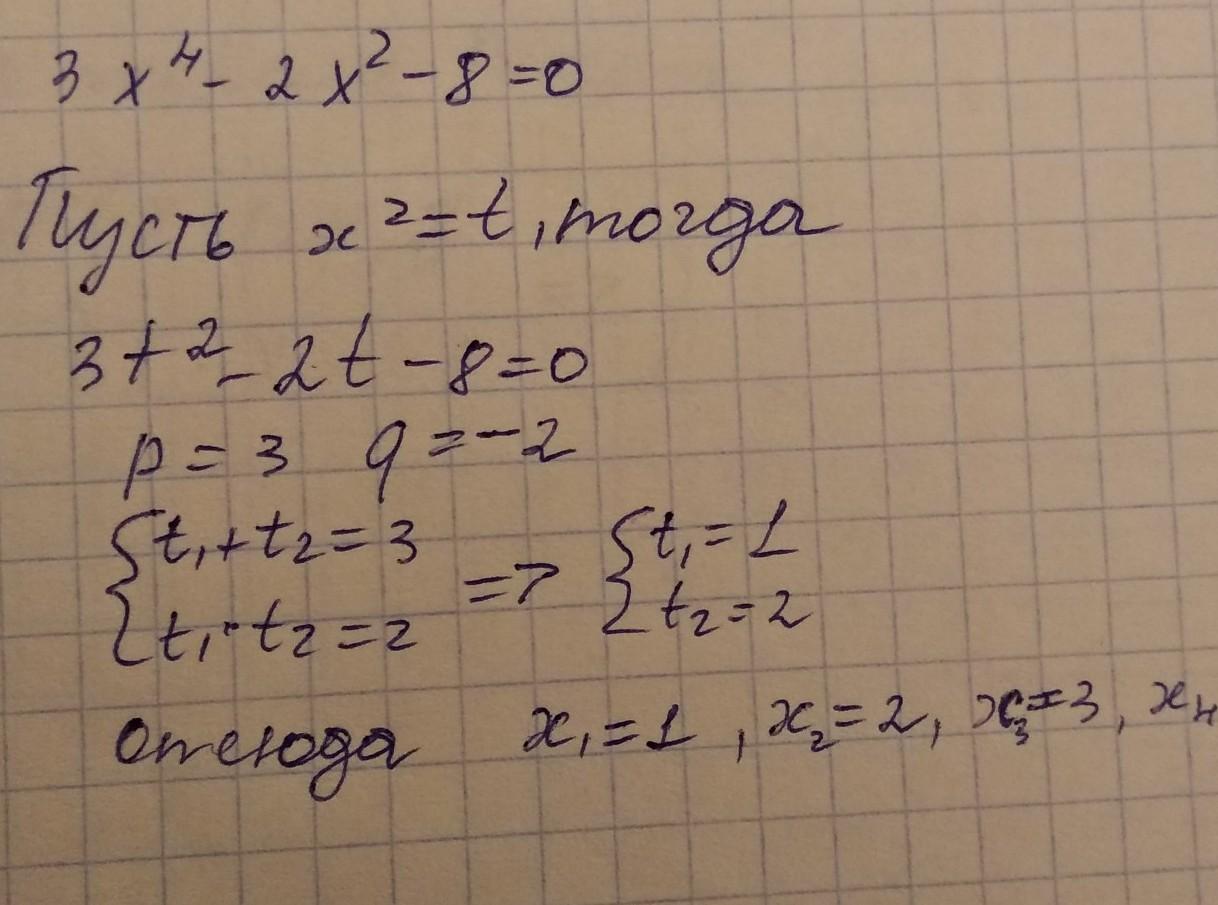 3 x⁴ - 2 x² - 8 = 0
Пусть x² = t, тогда
3t² - 2t - 8 = 0
p = 3 q = -2
{t₁ + t₂ = 3 => {t₁ = 1
t₁ · t₂ = 2 t₂ = 2
отсюда x₁ = 1, x₂ = 2, x₃ = 3, x₄